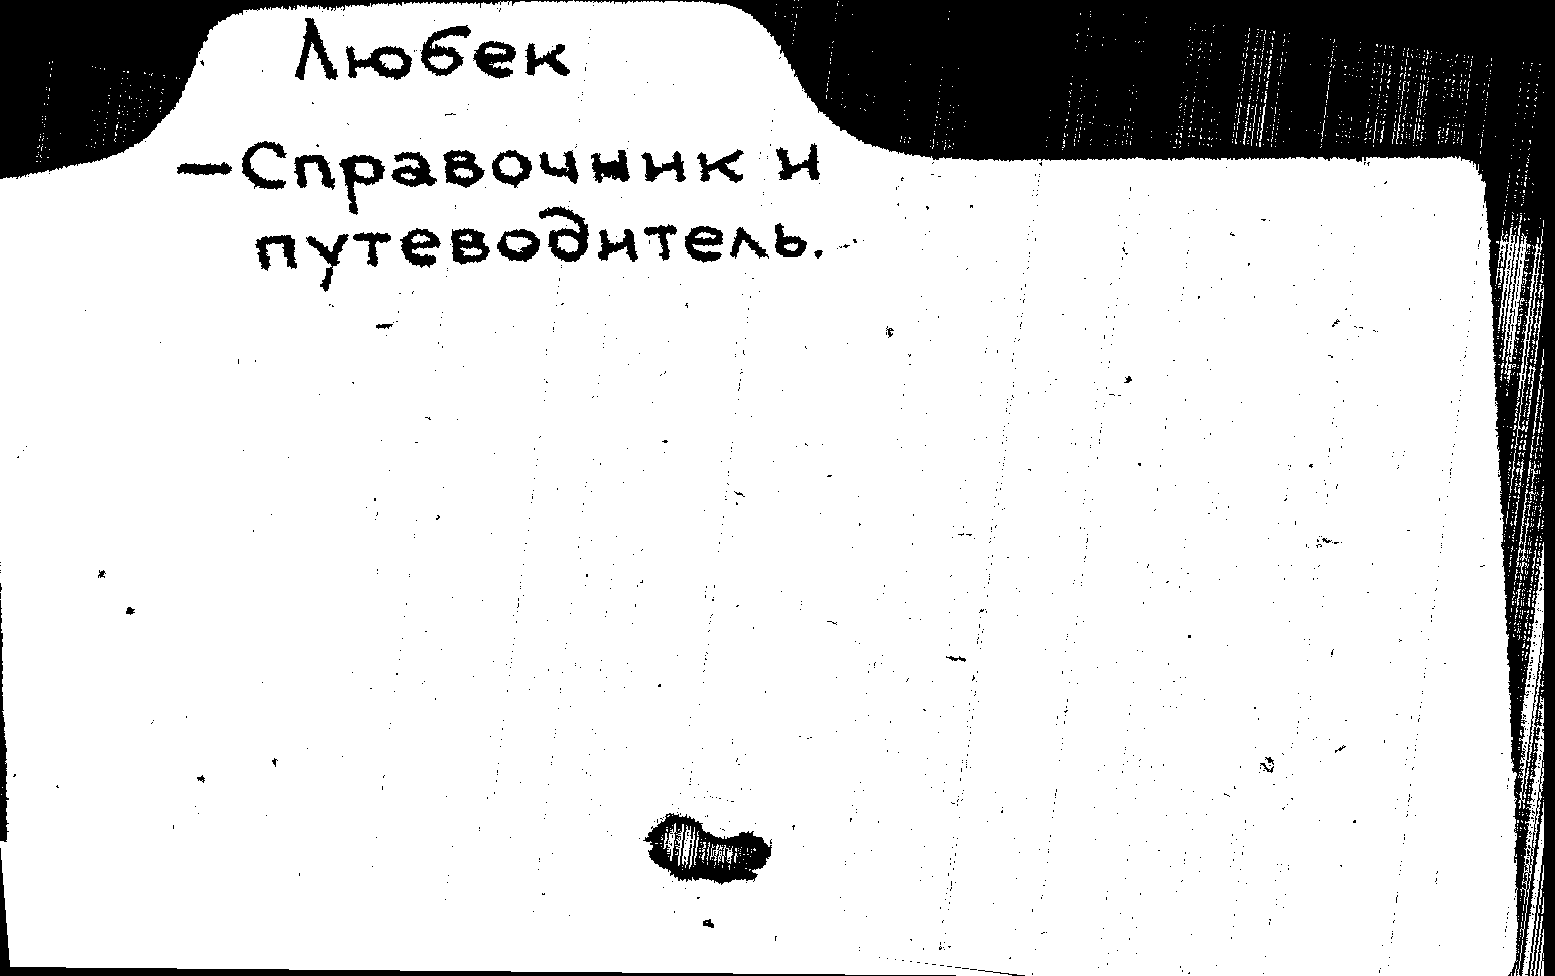 Любек
—Справочник и
путеводитель.